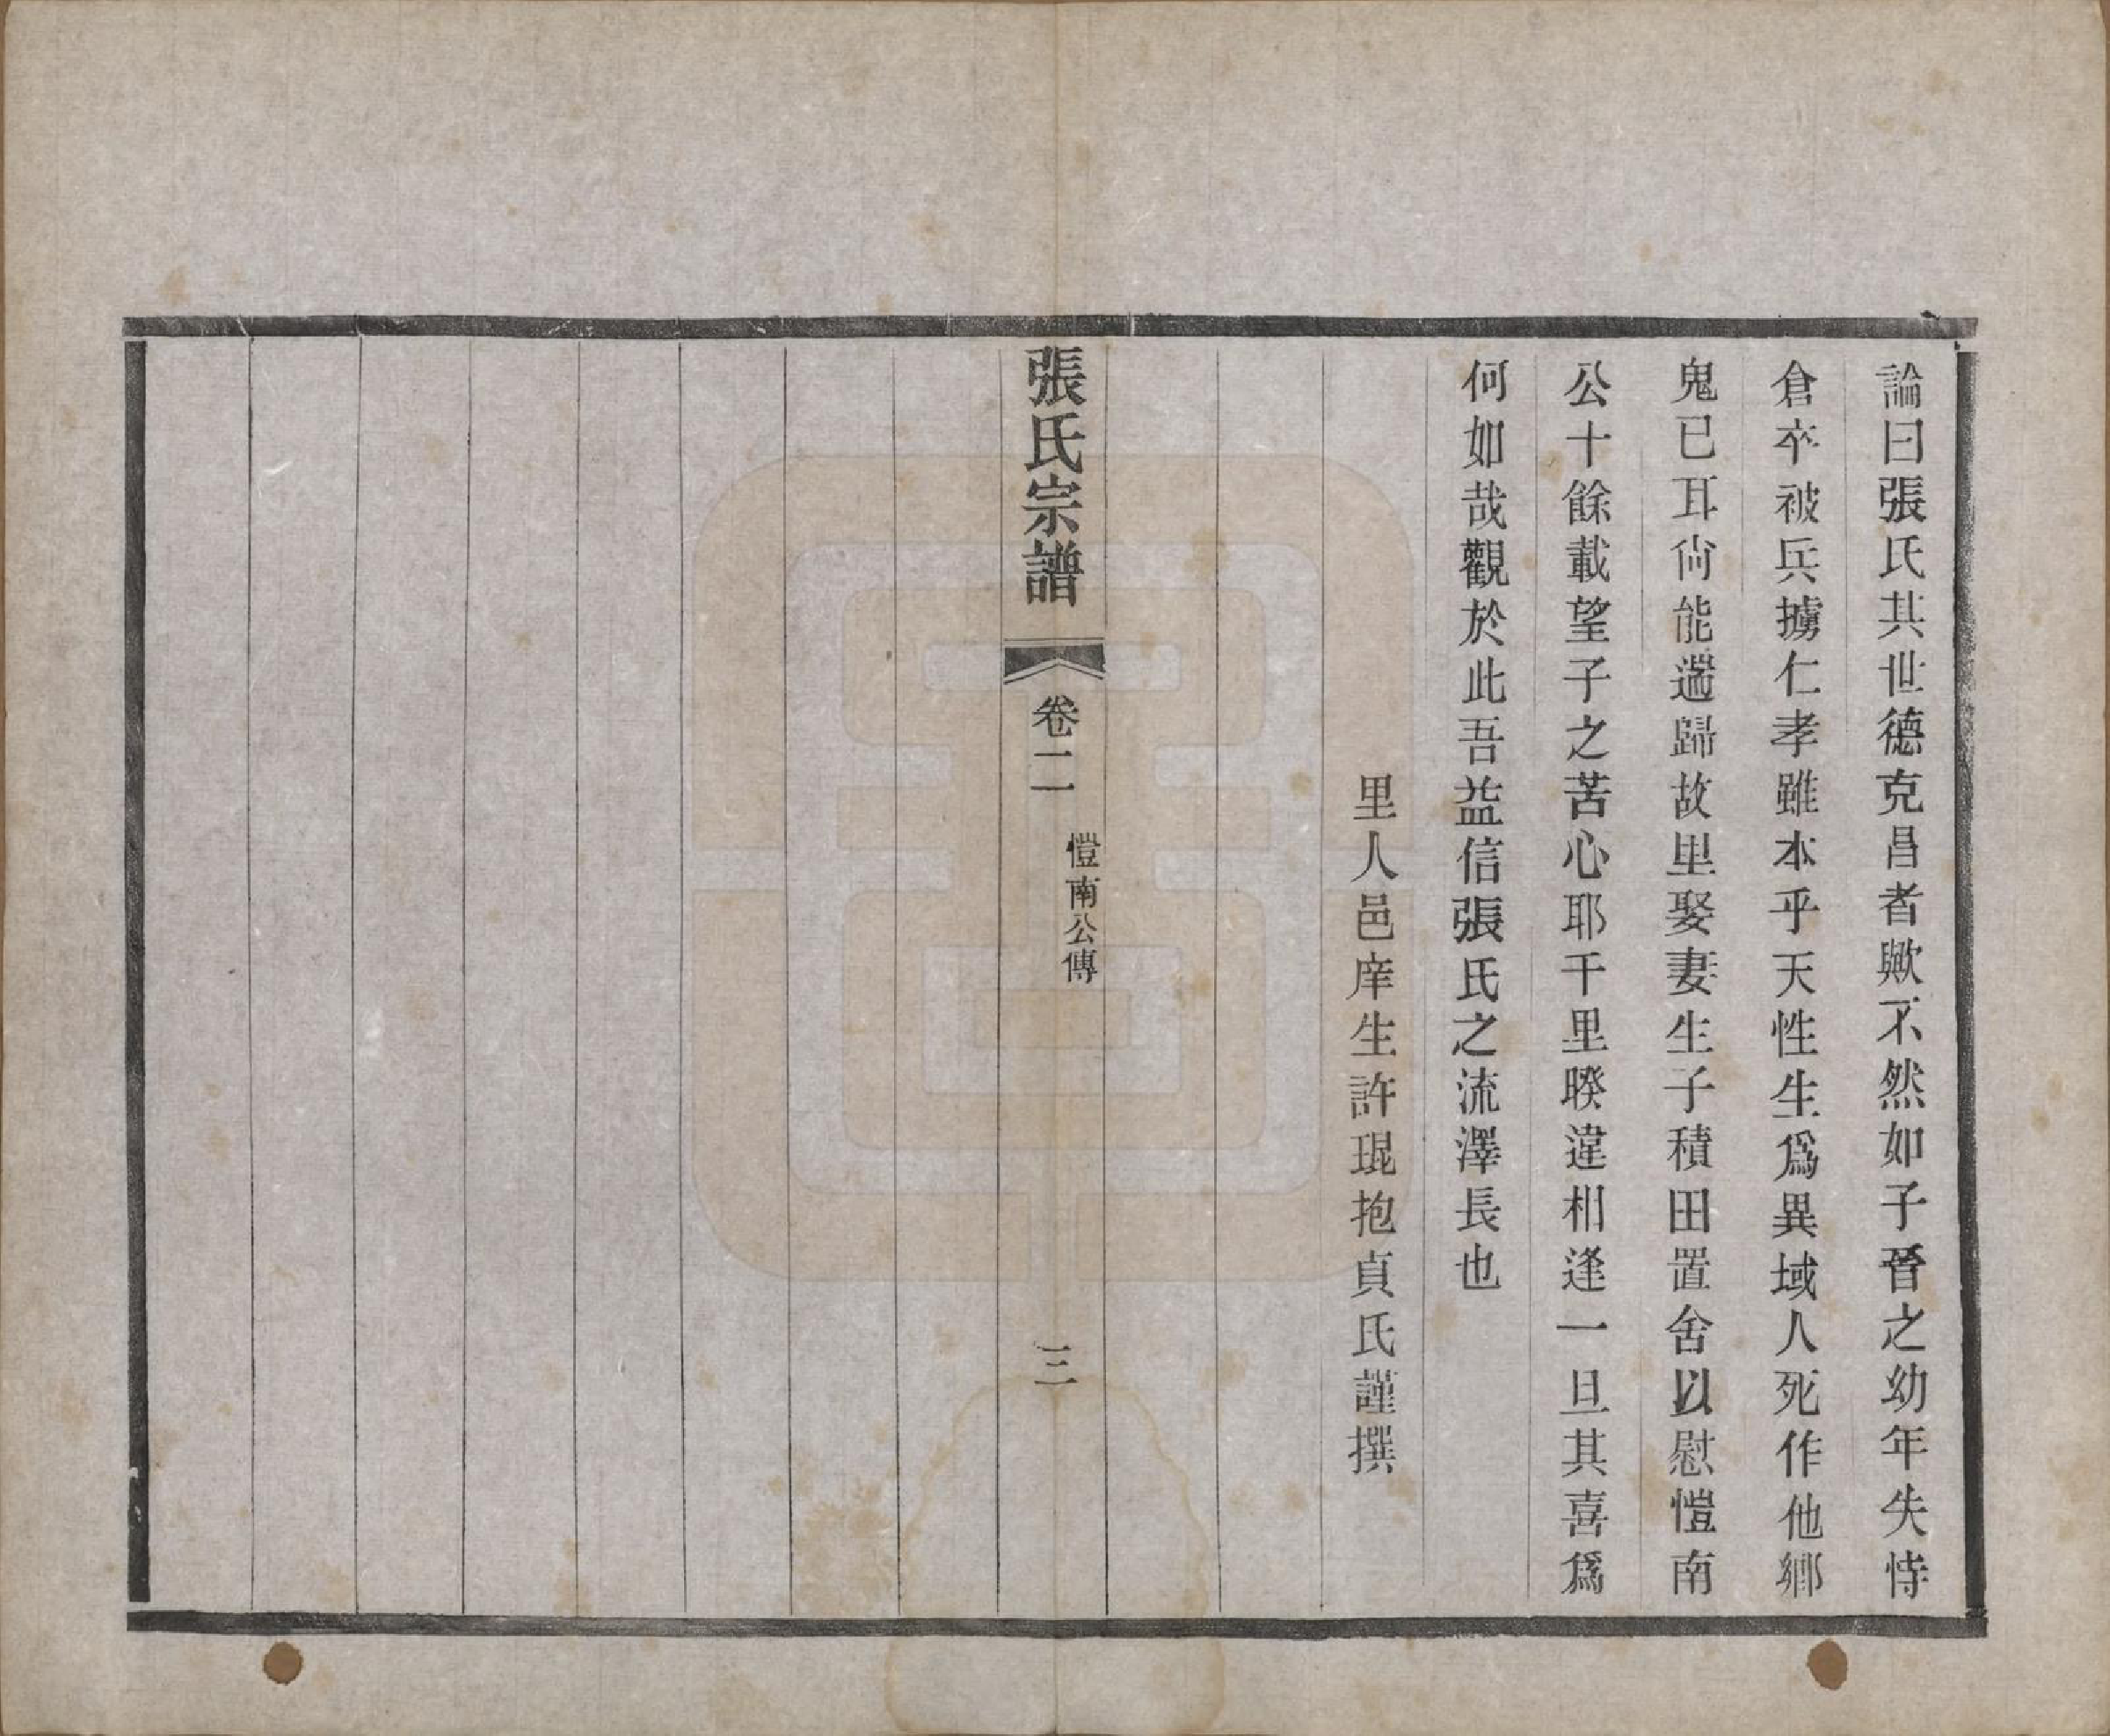 論曰張氏其世德克昌者歟不然如子晉之幼年失恃
倉卒被兵擄仁孝雖本乎天性生爲異域人死作他鄉
鬼已耳尙能遄歸故里娶妻生子積田置舍以慰愷南
公十餘載望子之苦心耶千里暌違相逢一旦其喜爲
何如哉觀於此吾益信張氏之流澤長也
里人邑庠生許琨抱貞氏謹撰
張氏宗譜
卷二
愷南公傳
三